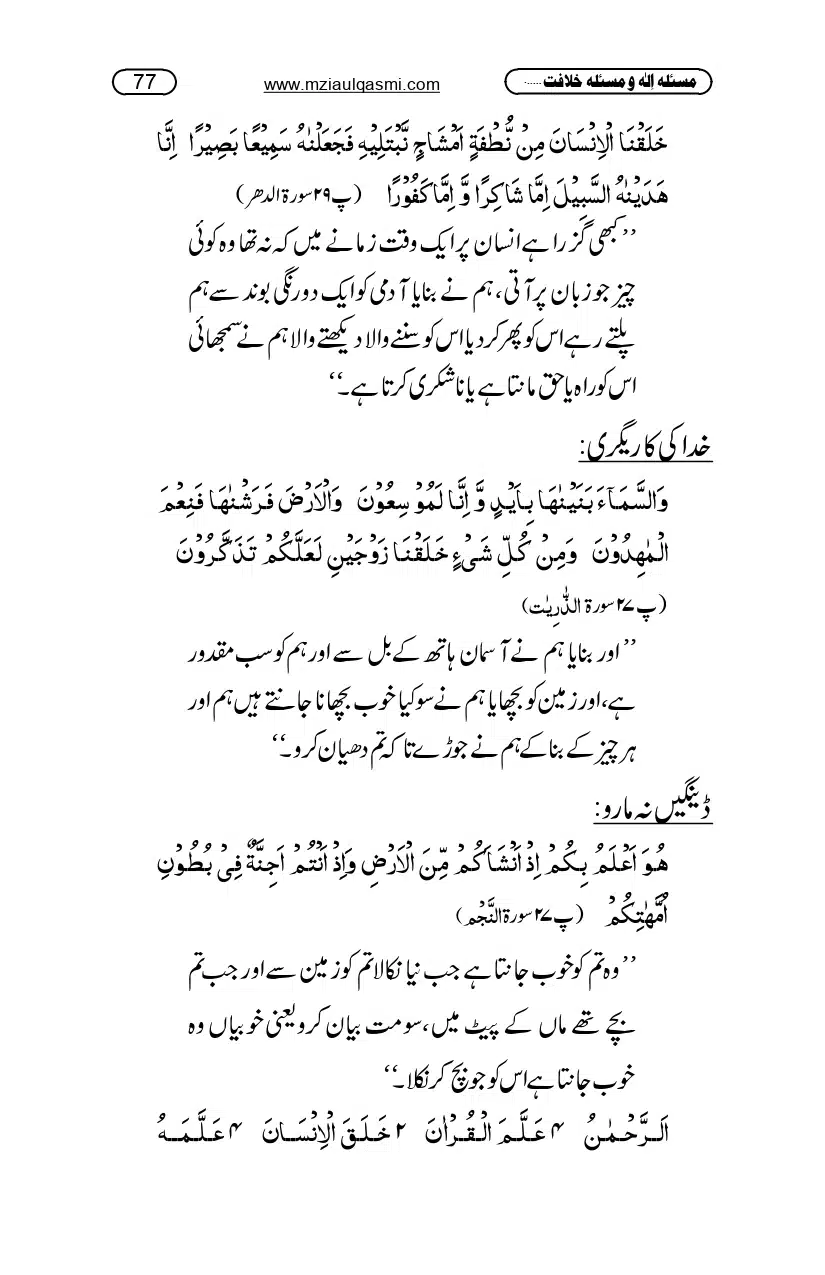 مسئلہ اِلٰہ و مسئلہ خلافت...... www.mziaulqasmi.com 77
خَلَقْنَا الْاِنْسَانَ مِنْ نُّطْفَةٍ اَمْشَاجٍ نَّبْتَلِيْهِ فَجَعَلْنٰهُ سَمِيْعًا بَصِيْرًا اِنَّا
هَدَيْنٰهُ السَّبِيْلَ اِمَّا شَاكِرًا وَّ اِمَّا كَفُوْرًا (پ ۲۹ سورۃ الدھر)
’’کبھی گزرا ہے انسان پر ایک وقت زمانے میں کہ نہ تھا وہ کوئی
چیز جو زبان پر آتی، ہم نے بنایا آدمی کو ایک دورنگی بوند سے ہم
پلٹتے رہے اس کو پھر کر دیا اس کو سننے والا دیکھنے والا ہم نے سمجھائی
اس کو راہ یا حق مانتا ہے یا ناشکری کرتا ہے۔‘‘
خدا کی کاریگری:
وَالسَّمَآءَ بَنَيْنٰهَا بِاَيْدٍ وَّ اِنَّا لَمُوْسِعُوْنَ وَالْاَرْضَ فَرَشْنٰهَا فَنِعْمَ
الْمٰهِدُوْنَ وَمِنْ كُلِّ شَیْءٍ خَلَقْنَا زَوْجَيْنِ لَعَلَّكُمْ تَذَكَّرُوْنَ
(پ ۲۷ سورۃ الذّٰرِیٰت)
’’اور بنایا ہم نے آسمان ہاتھ کے بل سے اور ہم کو سب مقدور
ہے، اور زمین کو بچھایا ہم نے سو کیا خوب بچھانا جانتے ہیں ہم اور
ہر چیز کے بنا کے ہم نے جوڑے تا کہ تم دھیان کرو۔‘‘
ڈینگیں نہ مارو:
هُوَ اَعْلَمُ بِكُمْ اِذْ اَنْشَاَكُمْ مِّنَ الْاَرْضِ وَاِذْ اَنْتُمْ اَجِنَّةٌ فِیْ بُطُوْنِ
اُمَّهٰتِكُمْ (پ ۲۷ سورۃ النَّجْم)
’’وہ تم کو خوب جانتا ہے جب نیا نکالا تم کو زمین سے اور جب تم
بچے تھے ماں کے پیٹ میں، سو مت بیان کرو یعنی خوبیاں وہ
خوب جانتا ہے اس کو جو بچ کر نکلا۔‘‘
اَلرَّحْمٰنُ ۴ عَلَّمَ الْقُرْاٰنَ ۲ خَلَقَ الْاِنْسَانَ ۴ عَلَّمَهُ